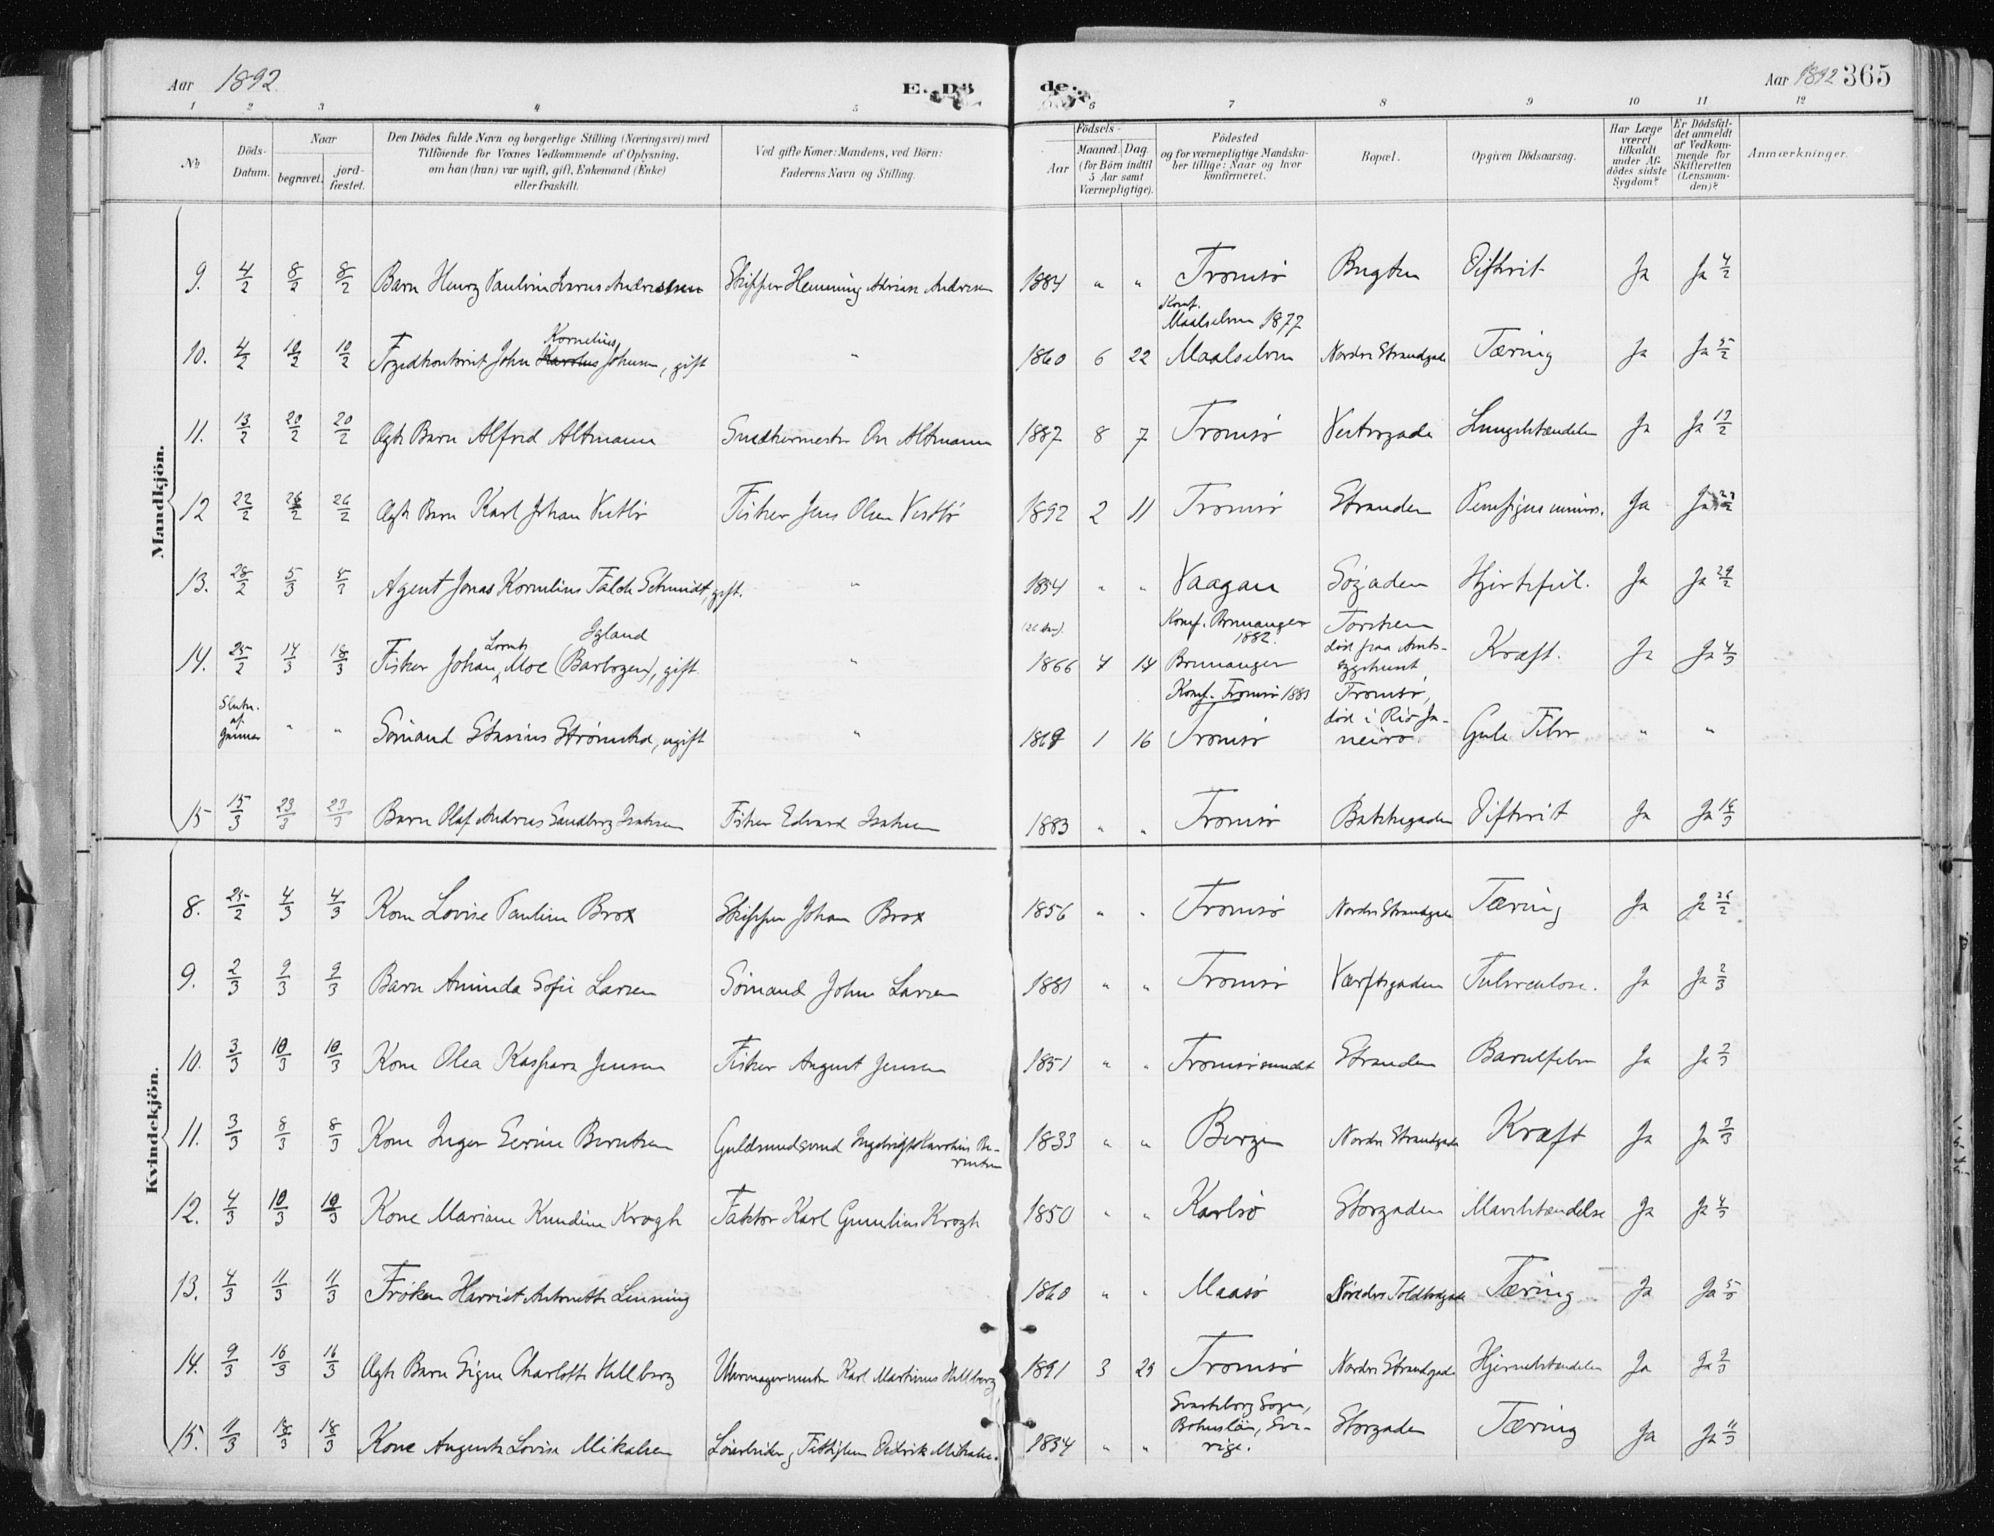 Aar 1892. E. Dö de. Aar 1892 365
1 2 3 4 5 6 7 8 9 10 11 12
№ Döds-Datum. Naar begravet. jord-fæstet. Den Dödes fulde Navn og borgerlige Stilling (Næringsvei) med Tilföiende for Voxnes Vedkommende af Oplysning, om han (hun) var ugift, gift, Enkemand (Enke) eller fraskilt. Ved gifte Koner: Mandens, ved Börn: Faderens Navn og Stilling. Födsels- Aar Maaned. Dag. (for Börn indtil 5 Aar samt Værnepligtige). Födested og for værnepligtige Mandskaber tillige: Naar og hvor konfirmeret. Bopæl. Opgiven Dödsaarsag. Har Læge været tilkaldt under Afdödes sidste Sygdom? Er Dödsfaldet anmeldt af Vedkommende for Skifteretten (Lensmanden)? Anmærkninger.
Mandkjön.
9. 4/2 8/2 8/2 Barn Henry Paulin Andresen Skipper Henning Andresen 1884 " " Tromsö Bugten Difterit Ja Ja 4/2
Konf. Maalselven 1877
10. 4/2 10/2 10/2 John Kornelius Johnsen, gift " 1860 6 22 Maalselven Nordre Strandgade Tæring Ja Ja 5/2
11. 13/2 20/2 20/2 Ægte Barn Alfred Altmann Snedkermester Altmann 1887 8 7 Tromsö Vestregade Lungebetændelse Ja Ja 17/2
12 22/2 26/2 26/2 Ægte Barn Karl Johan Vestbö Fisker Jens Olsen Vestbö 1892 2 11 Tromsö Stranden Ja Ja
13. 28/2 5/3 5/3 Agent Jonas Kornelius Falch Schmidt, gift. " 1854 " " Vaagan Søgaden Hjertefeil. Ja Ja 29/2
14. 25/2 14/3 18/3 Fisker Johan Lorentz Moe (Igland), gift " 1866 4 14 Konf. Bremanger 1882. Bremanger Torsken död paa Amtssygehuset Kræft. Ja Ja 4/3
Slutn. af Januar " " Sömand Stasius Strömsted, ugift " 1869 1 16 Konf. Tromsö 1883 Tromsö Tromsö, död i Rio Janeiro Gule Feber " "
15 15/3 23/3 23/3 Barn Olaf Andreas Sandberg Isaksen Fisker Edvard Isaksen 1883 " " Tromsö Bakkegaden Difterit Ja Ja 16/3
Kvindekjön.
8. 25/2 4/3 4/3 Kone Lovise Pauline Brox Skipper Johan Brox 1856 " " Tromsö Nordre Strandgade Tæring Ja Ja 26/2
9. 2/3 9/3 9/3 Barn Aminda Sofie Larsen Sömand John Larsen 1881 " " Tromsö Værftsgaden Tuberculose. Ja Ja 2/3
10. 3/3 10/3 10/3 Kone Olea Kaspara Jensen Fisker August Jensen 1851 " " Tromsösundet Stranden Barselfeber Ja Ja 3/3
11. 3/3 8/3 8/3 Kone Inger Serine Berntsen Guldsmedsvend Berntsen 1833 " " Bergen Nordre Strandgade Kræft Ja Ja 3/3
12. 4/3 10/3 10/3 Kone Mariane Knudine Krogh Faktor Karl Krogh 1850 " " Karlsö Storgaden Mavebetændelse Ja Ja 4/3
13. 4/3 11/3 11/3 Fröken Harriet Antonette Lenning 1860 " " Maasö Söndre Toldbodgade Tæring Ja Ja 5/3
14. 9/3 16/3 16/3 Ægte Barn Signe Charlotte Hellberg Uhrmagermester Karl Martinus Hellberg 1891 3 25 Tromsö Nordre Strandgade Hjernebetændelse Ja Ja 9/3
15. 11/3 18/3 18/3 Kone Augusta Lovise Mikalsen 1834 " " Svarteborg Sogn, Bohuslän, Sverige. Storgaden Tæring Ja Ja 11/3